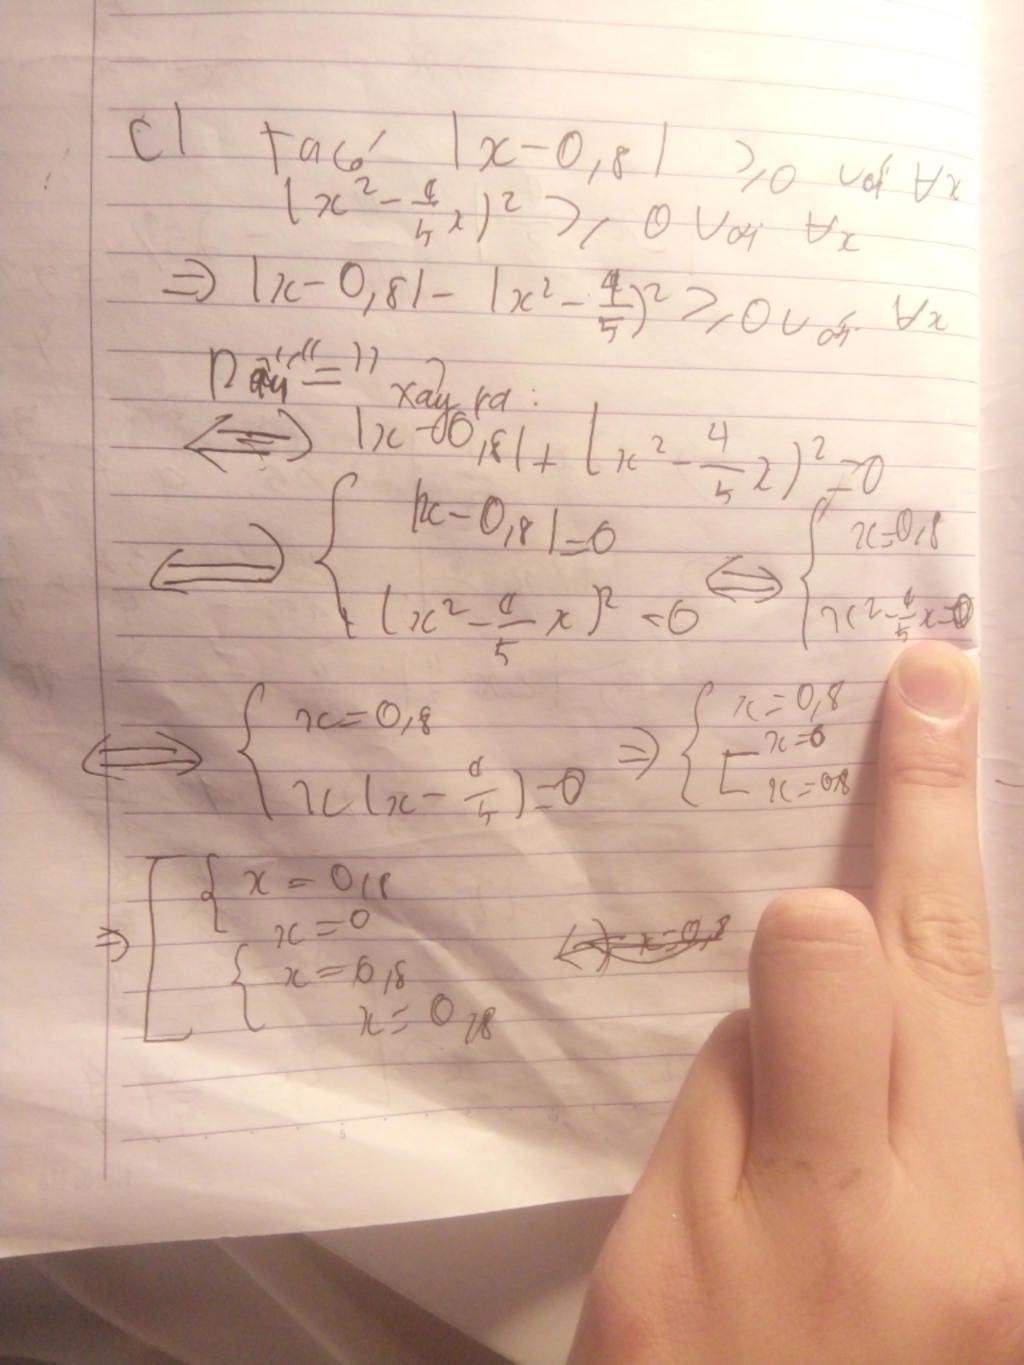 c) Ta có |x-0,8| ≥ 0 với ∀x
(x² - 4/5 x)² ≥ 0 với ∀x
⇒ |x-0,8| - (x² - 4/5)² ≥ 0 với ∀x
Dấu "=" xảy ra:
⇔ |x-0,8| + (x² - 4/5 x)² = 0
⇔ { |x-0,8| = 0 ; (x² - 4/5 x)² = 0 ⇔ { x = 0,8 ; x² - 4/5 x = 0
⇔ { x = 0,8 ; x(x - 4/5) = 0 ⇒ { x = 0,8 ; [ x = 0 ; x = 0,8
⇒ [ { x = 0,8
x = 0
{ x = 0,8
x = 0,8